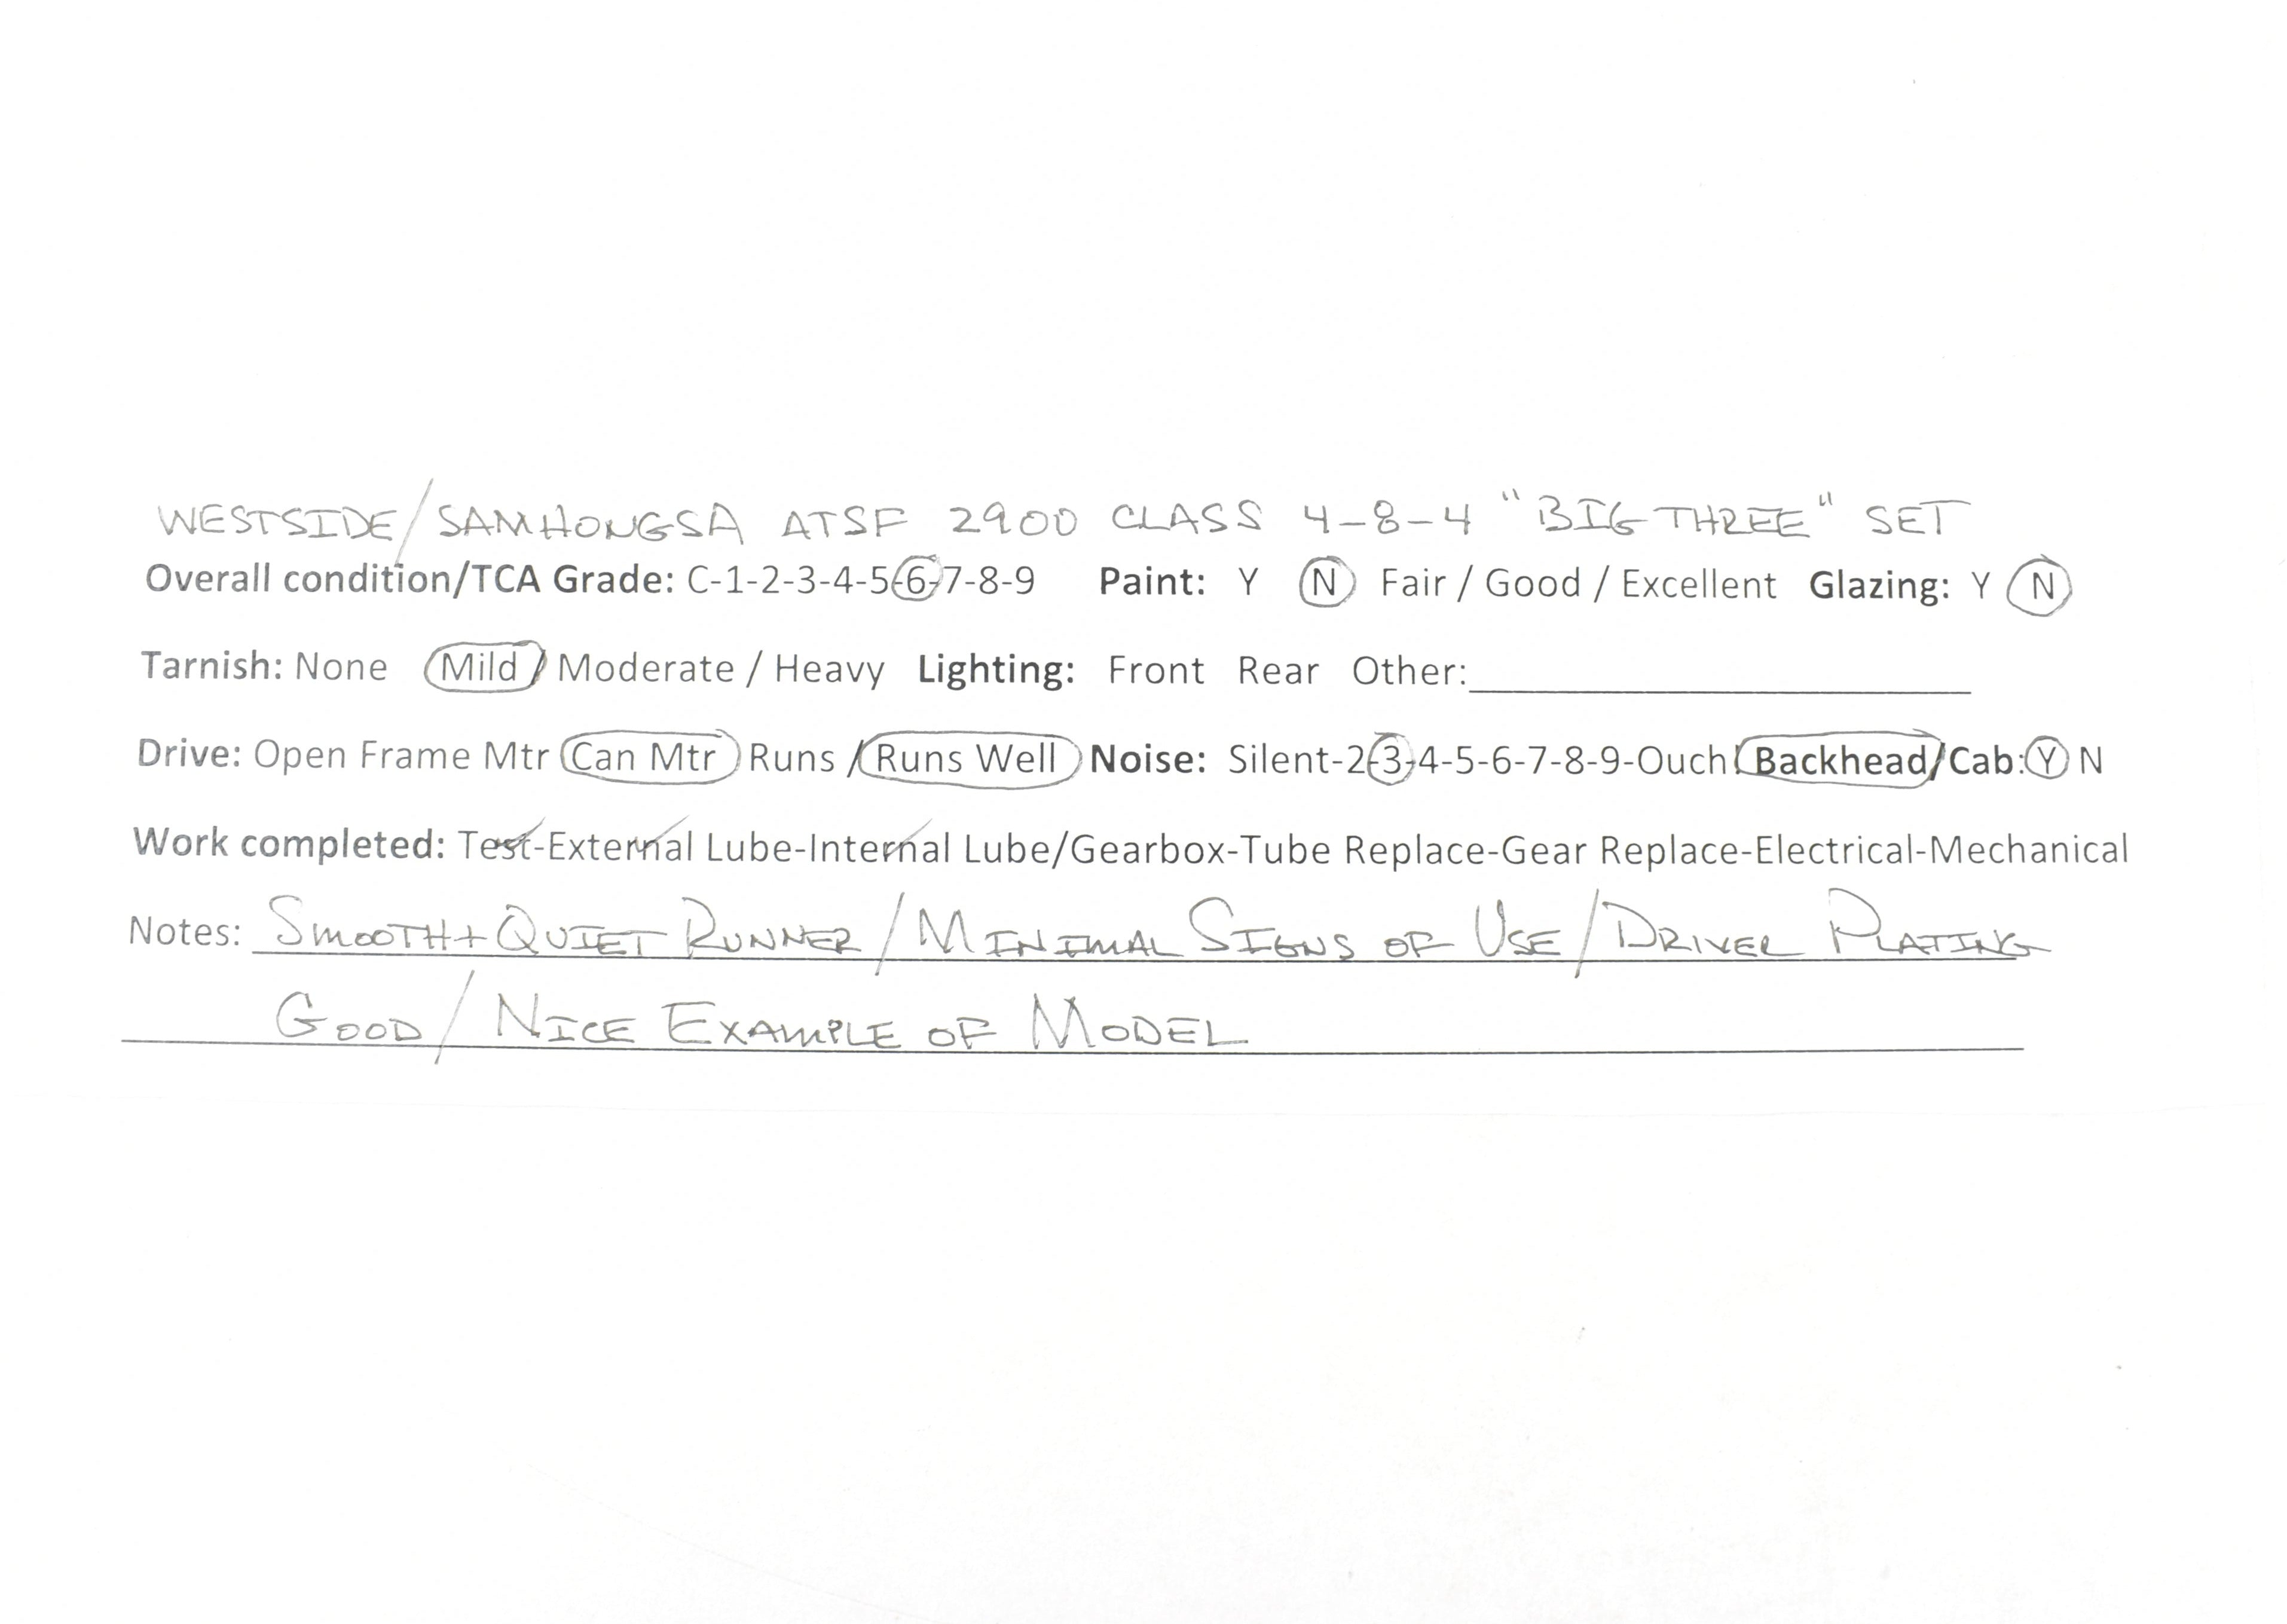 WESTSIDE/SAMHONGSA ATSF 2900 CLASS 4-8-4 "BIG THREE" SET
Overall condition/TCA Grade: C-1-2-3-4-5-6-7-8-9 Paint: Y N Fair / Good / Excellent Glazing: Y N
Tarnish: None Mild / Moderate / Heavy Lighting: Front Rear Other:
Drive: Open Frame Mtr Can Mtr Runs / Runs Well Noise: Silent-2-3-4-5-6-7-8-9-Ouch! Backhead/Cab: Y N
Work completed: Test-External Lube-Internal Lube/Gearbox-Tube Replace-Gear Replace-Electrical-Mechanical
Notes: SMOOTH + QUIET RUNNER / MINIMAL SIGNS OF USE / DRIVER PLATING
GOOD / NICE EXAMPLE OF MODEL